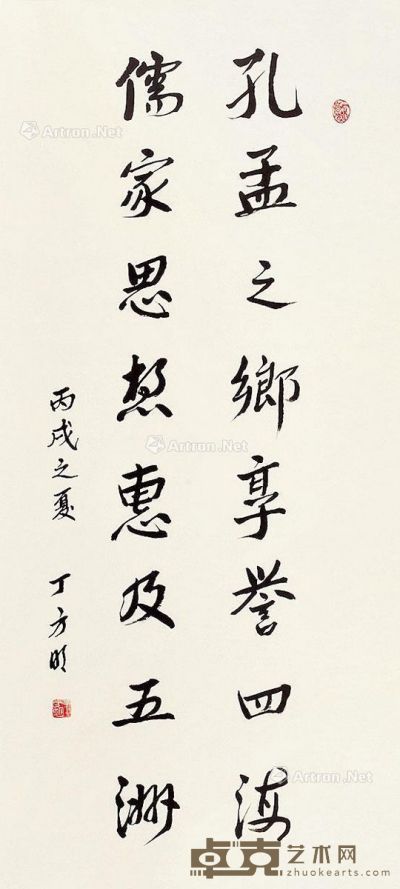 孔孟之鄉享誉四海
儒家思想惠及五洲
丙戌之夏 丁方明
Artron.Net
Artron.Net
Artron.Net
卓克艺术网
zhuokearts.com